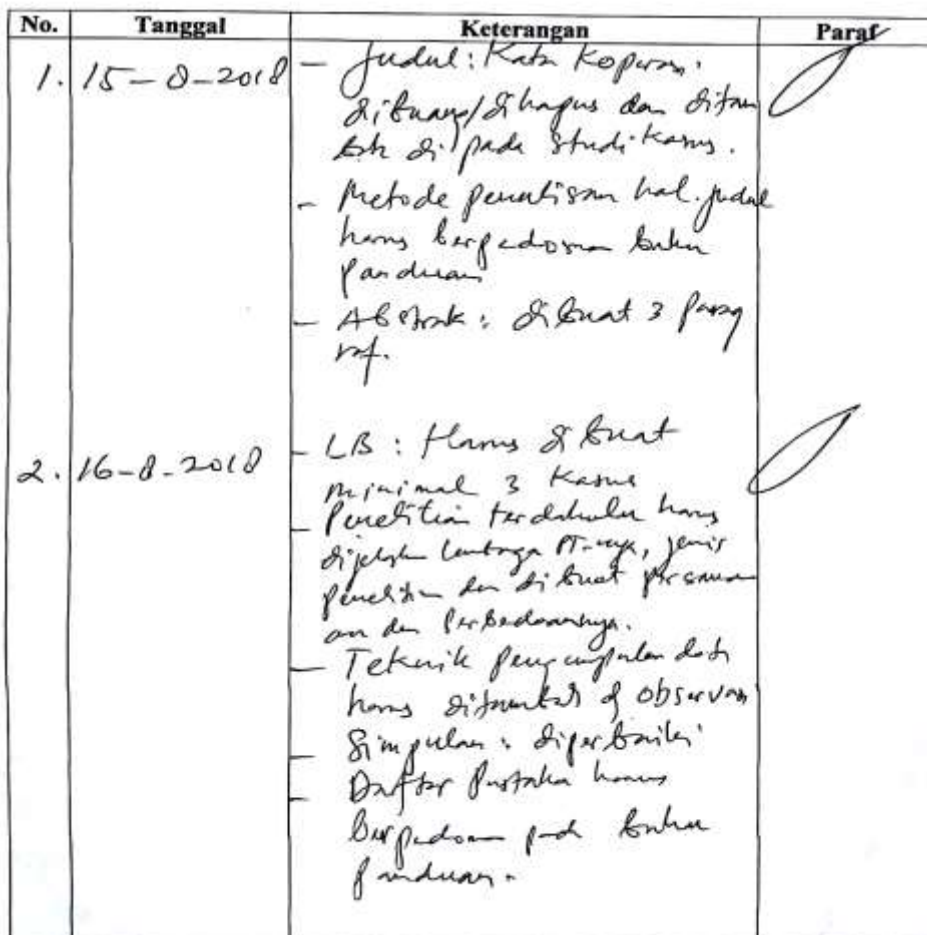 No. Tanggal Keterangan Paraf
1. 15-8-2018 - Judul: Kata Koperasi
dibuang/dihapus dan ditam
bah di pada Studi Kasus.
- Metode penulisan hal. judul
harus berpedoman buku
panduan
- Abstrak: dibuat 3 parag
raf.
2. 16-8-2018 - LB: Harus dibuat
minimal 3 Kasus
- Penelitian terdahulu harus
dijelaskan lembaga PT-nya, jenis
penelitian dan dibuat persamaan
an dan Perbedaannya.
- Teknik pengumpulan data
harus ditambah observasi
- Simpulan: diperbaiki
- Daftar Pustaka harus
Berpedoman pada buku
panduan.